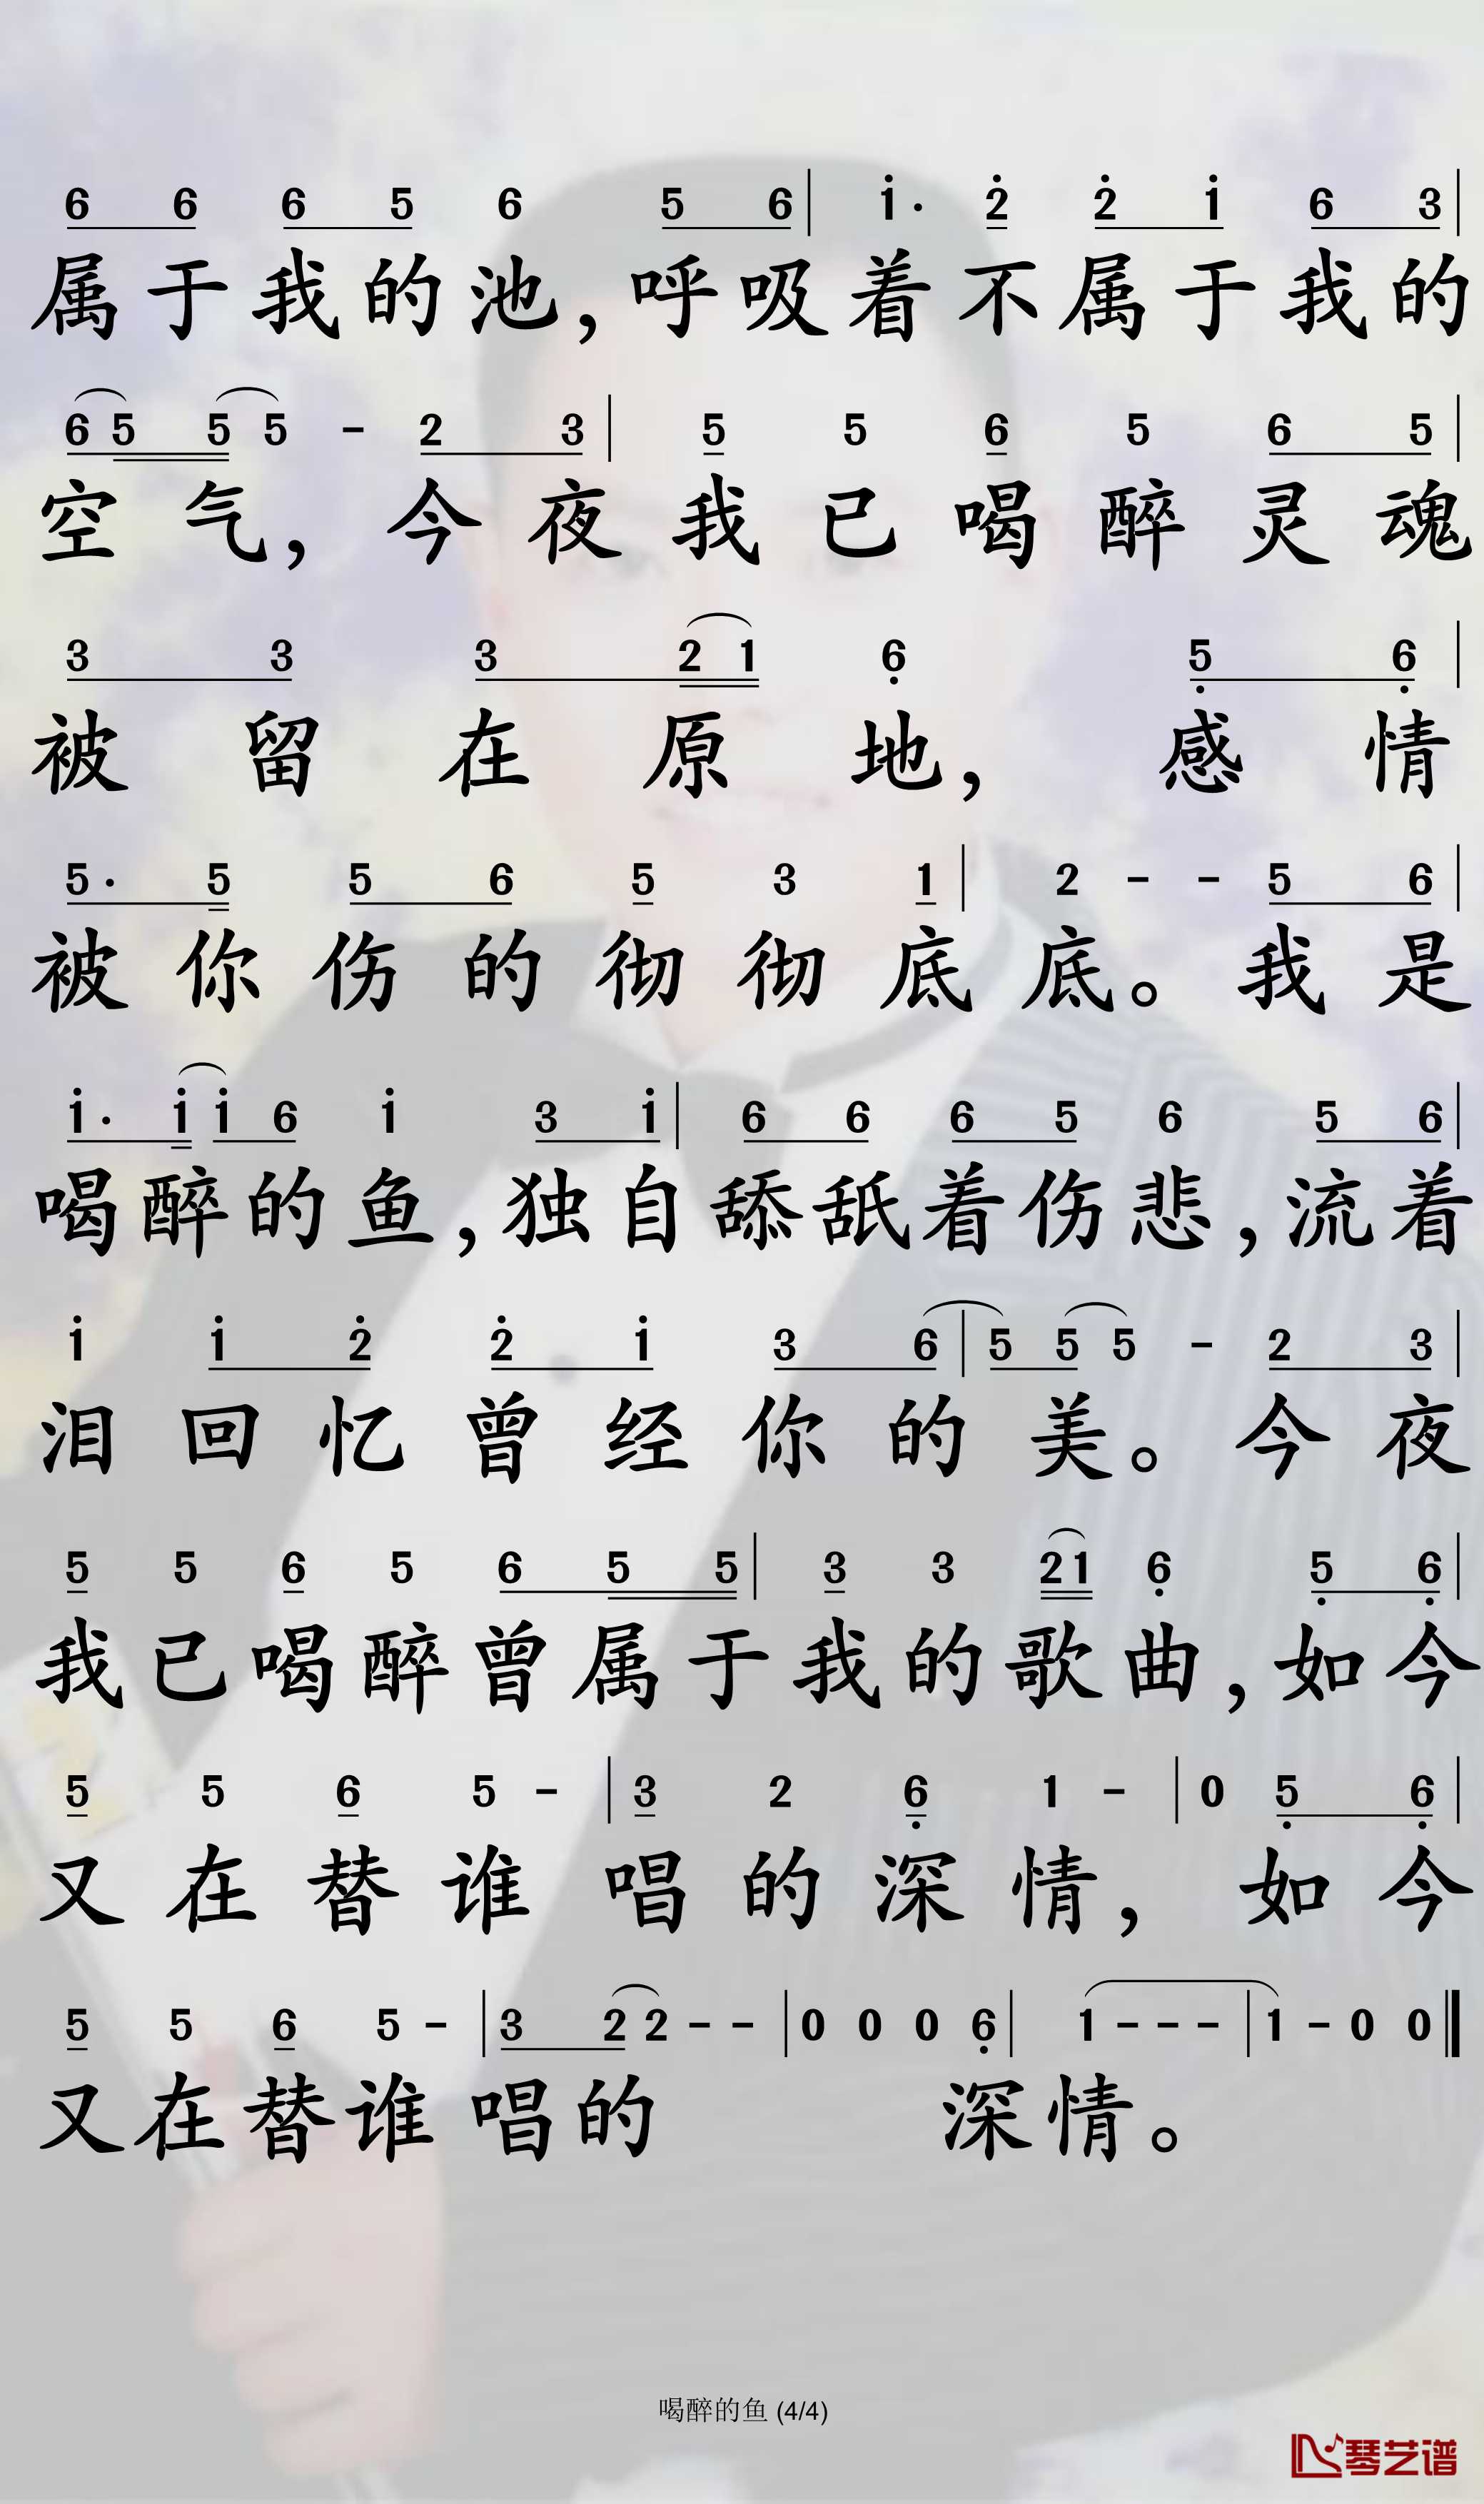 6 6 6 5 6 5 6 | i· 2 2 i 6 3 |
属于我的池，呼吸着不属于我的
6 5 5 5 - 2 3 | 5 5 6 5 6 5 |
空气，今夜我已喝醉灵魂
3 3 3 2 1 6 5 6 |
被留在原地，感情
5· 5 5 6 5 3 1 | 2 - - 5 6 |
被你伤的彻彻底底。我是
i· i i 6 i 3 i | 6 6 6 5 6 5 6 |
喝醉的鱼，独自舔舐着伤悲，流着
i i 2 2 i 3 6 | 5 5 5 - 2 3 |
泪回忆曾经你的美。今夜
5 5 6 5 6 5 5 | 3 3 2 1 6 5 6 |
我已喝醉曾属于我的歌曲，如今
5 5 6 5 - | 3 2 6 1 - | 0 5 6 |
又在替谁唱的深情，如今
5 5 6 5 - | 3 2 2 - - | 0 0 0 6 | 1 - - - | 1 - 0 0 ‖
又在替谁唱的深情。
喝醉的鱼 (4/4)
琴艺谱